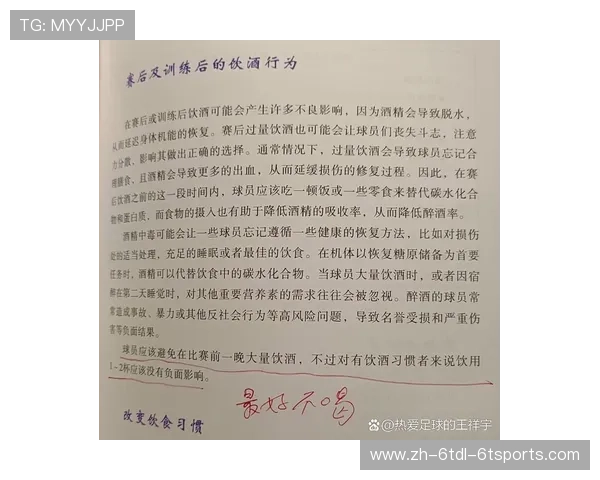 TG: MYYJJPP
赛后及训练后的饮酒行为
在赛后或训练后饮酒可能会产生许多不良影响，因为酒精会导致脱水，
从而延迟身体机能的恢复。赛后过量饮酒也可能会让球员们丧失斗志，注意
力分散、影响其做出正确的选择。通常情况下，过量饮酒会导致球员忘记合
理膳食、且酒精会导致更多的出血，从而延缓损伤的修复过程。因此，在赛
后饮酒之前的这一段时间内，球员应该吃一顿饭或一些零食来替代碳水化合
物和蛋白质，而食物的摄入也有助于降低酒精的吸收率，从而降低醉酒率。
酒精中毒可能会让一些球员忘记遵循一些健康的恢复方法，比如对损伤
处的适当处理，充足的睡眠或者最佳的饮食。在机体以恢复糖原储备为首要
任务时，酒精可以代替饮食中的碳水化合物。当球员大量饮酒时，或者因宿
醉在第二天睡觉时，对其他重要营养素的需求往往会被忽视。醉酒的球员常
常造成事故、暴力或其他反社会行为等高风险问题，导致名誉受损和严重伤
害等负面结果。
球员应该避免在比赛前一晚大量饮酒，不过对有饮酒习惯者来说饮用
1-2杯应该没有负面影响。
最好不喝
改变饮食习惯
@热爱足球的王祥宇
www.zh-6tdl-6tsports.com